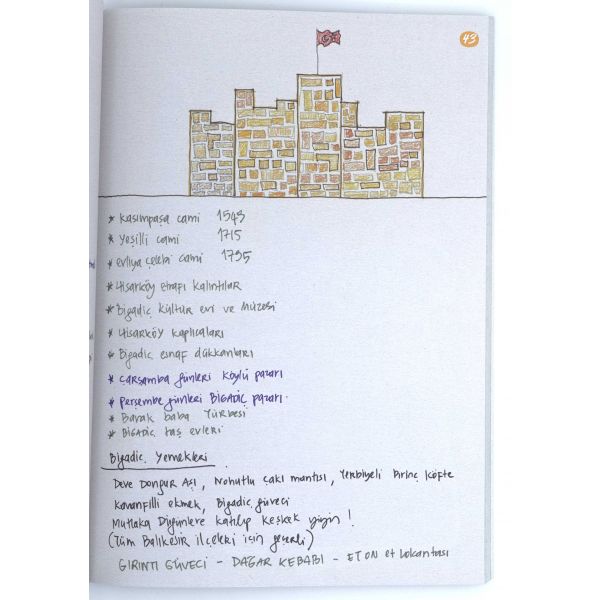 43
* Kasımpaşa cami 1543
* Yeşilli cami 1715
* evliya çelebi cami 1735
* Hisarköy etrafı kalıntılar
* Bigadiç kültür evi ve müzesi
* Hisarköy kaplıcaları
* Bigadiç esnaf dükkanları
* Çarşamba günleri köylü pazarı
* Perşembe günleri BİGADİÇ pazarı.
* Barak baba TÜRBESİ
* BİGADİÇ taş evleri
Bigadiç Yemekleri
Deve Dongur Aşı, Nohutlu çakı mantısı, Terbiyeli Pirinç köfte
Karanfilli ekmek, Bigadiç güveci
Mutlaka Düğünlere katılıp Keşkek yiyin!
(Tüm Balıkesir ilçeleri için geçerli)
GIRINTI GÜVECİ - DAĞAR KEBABI - ETON et lokantası